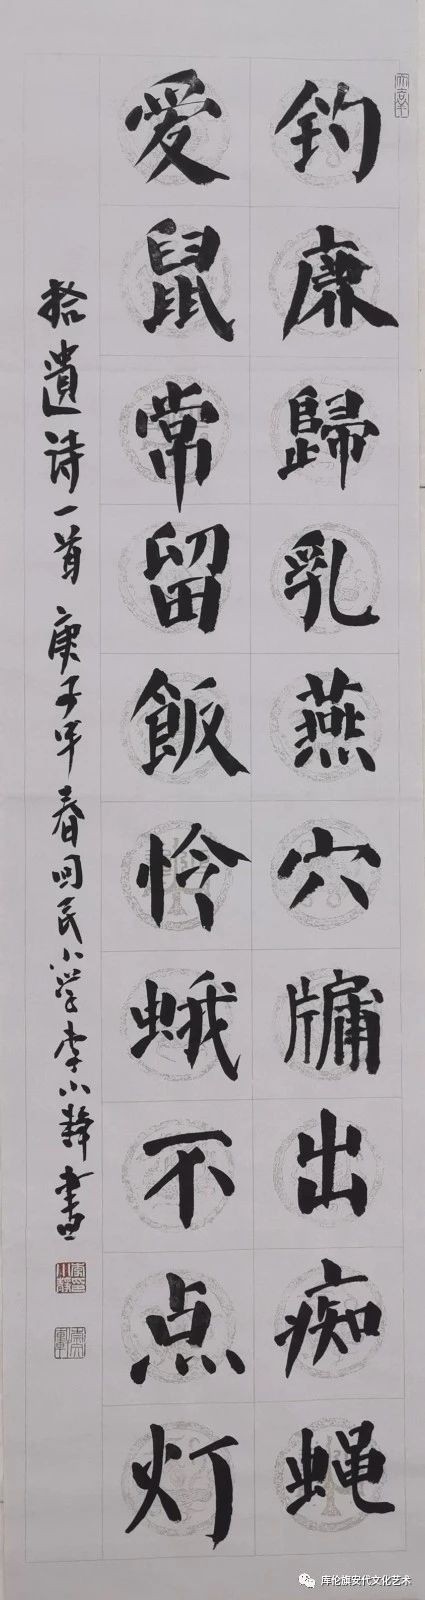 钓廉歸乳燕穴牖出痴蝇
愛鼠常留飯怜蛾不点灯
拾遺诗一首 庚子年春回民小学李小静書
库伦旗安代文化艺术